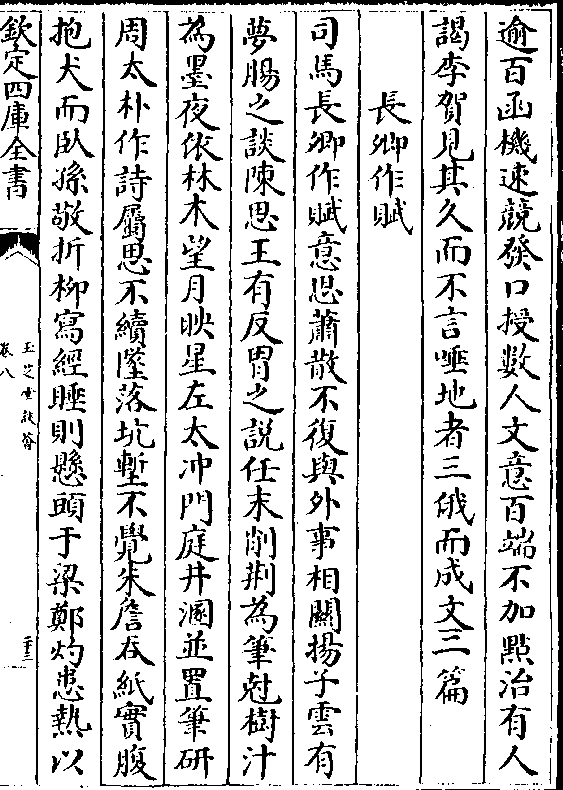 逾百函機速競發口授數人文意百端不加㸃治有人
謁李賀見其久而不言唾地者三俄而成文三篇
長卿作賦
司馬長卿作賦意思蕭散不復與外事相關揚子雲有
夢腸之談陳思王有反胃之説任末削荆為筆尅樹汁
為墨夜依林木望月映星左太冲門庭井溷並置筆研
周太朴作詩屬思不續墜落坑塹不覺朱詹吞紙實腹
抱犬而臥孫敬折柳寫經睡則懸頭于梁鄭灼患熱以
欽定四庫全書
玉芝堂談薈
卷八
二十三